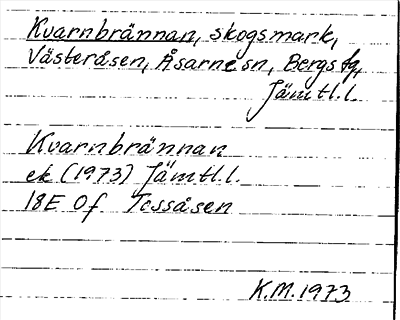 Kvarnbrännan, skogsmark,
Västeråsen, Åsarne sn, Bergs tg,
Jämtl.l.
Kvarnbrännan
ek (1973) Jämtl.l.
18E 0f Tossåsen
K.M. 1973